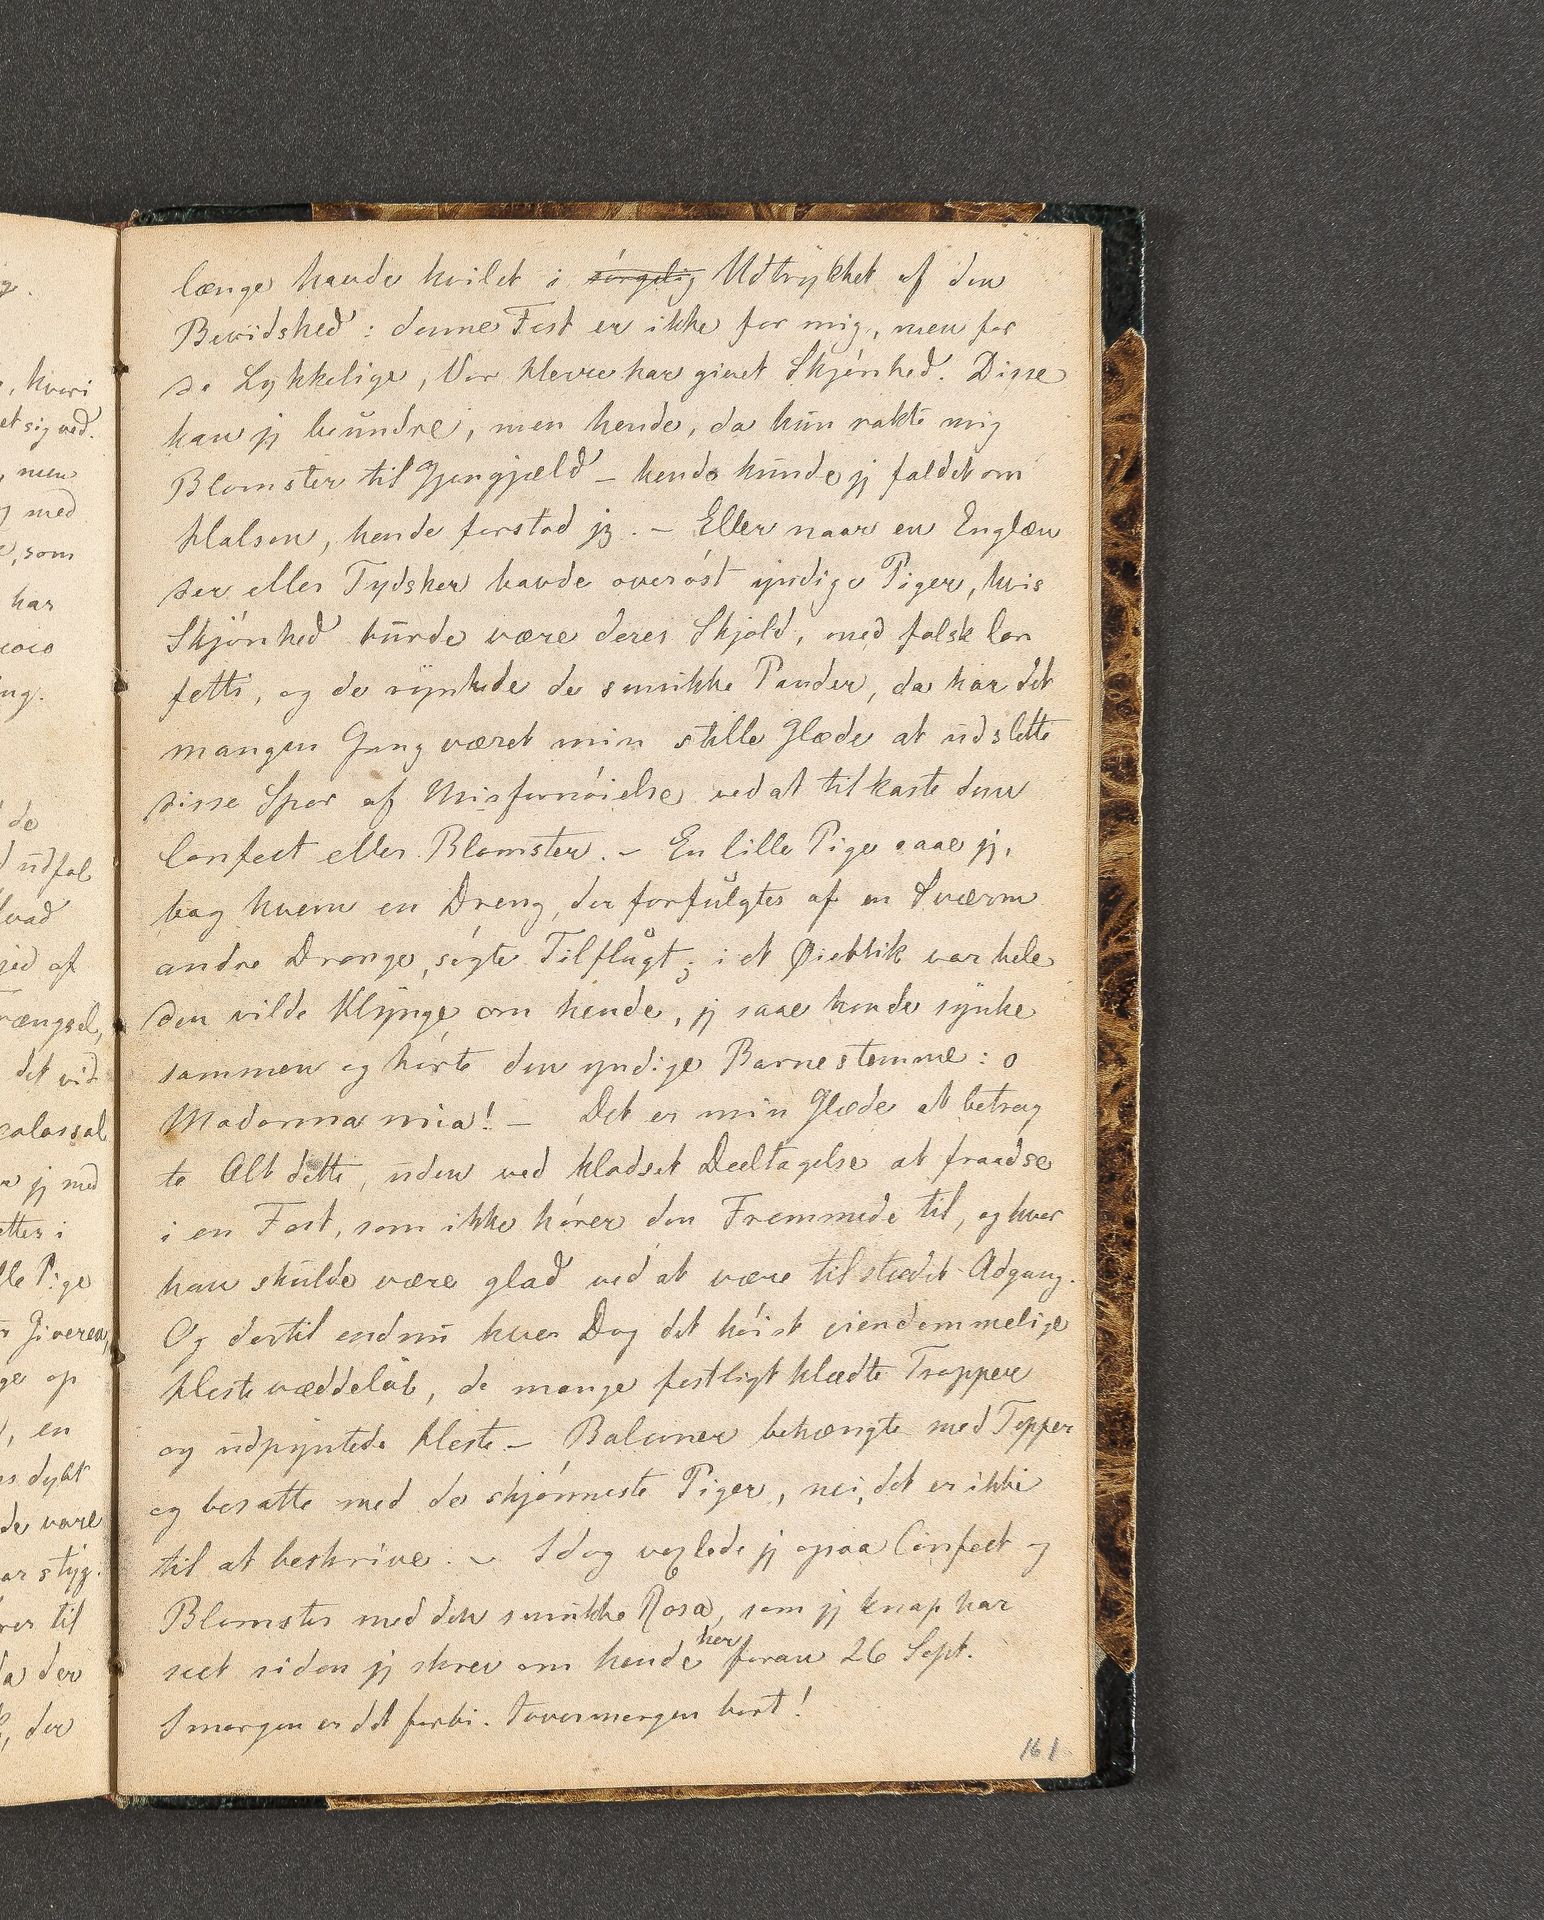 længe havde hvilet i sørgelig Udtrykket af den
Bevidshed: denne Fest er ikke for mig, men for
de Lykkelige, Vor Herre har givet Skjönhed. Disse
kan jg beundre, men hende, da hun rakte mig
Blomster til Gjengjæld – hende kunde jg faldet om
Halsen, hende forstod jg. – Eller naar en Englæn
der eller Tydsker havde overöst yndige Piger, hvis
Skjönhed burde være deres Skjold, med falsk Con
fetti, og de rynkede de smukke Pander, da har det
mangen Gang været min stille Glæde at udslette
disse Spor af Misfornöielse ved at tilkaste dem
Confect eller Blomster. – En lille Pige saae jg,
bag hvem en Dreng, der forfulgtes af en Sværm
andre Drenge, sögte Tilflugt; i et Øieblik var hele
den vilde Klynge om hende, jg saae hende synke
sammen og hörte den yndige Barnestemme: o
Madonna mia! – Det er min Glæde at betrag
te Alt dette, uden ved kladset Deeltagelse at fraadse
i en Fest, som ikke hörer den Fremmede til, og hvor
han skulde være glad ved at være tilstedet Adgang.
Og dertil endnu hver Dag det höist eiendommelige
Hestevæddelöb, de mange festligt klædte Tropper
og udpyntede Heste – Balconer behængte med Tepper
og besatte med de skjönneste Piger, nei, det er ikke
til at beskrive. – Idag vexlede jg ogsaa Confect og
Blomster med den smukke Rosa, som jg knap har
seet siden jg skrev om hende her foran 26 Sept.
Imorgen er det forbi. Iovermorgen bort!
161